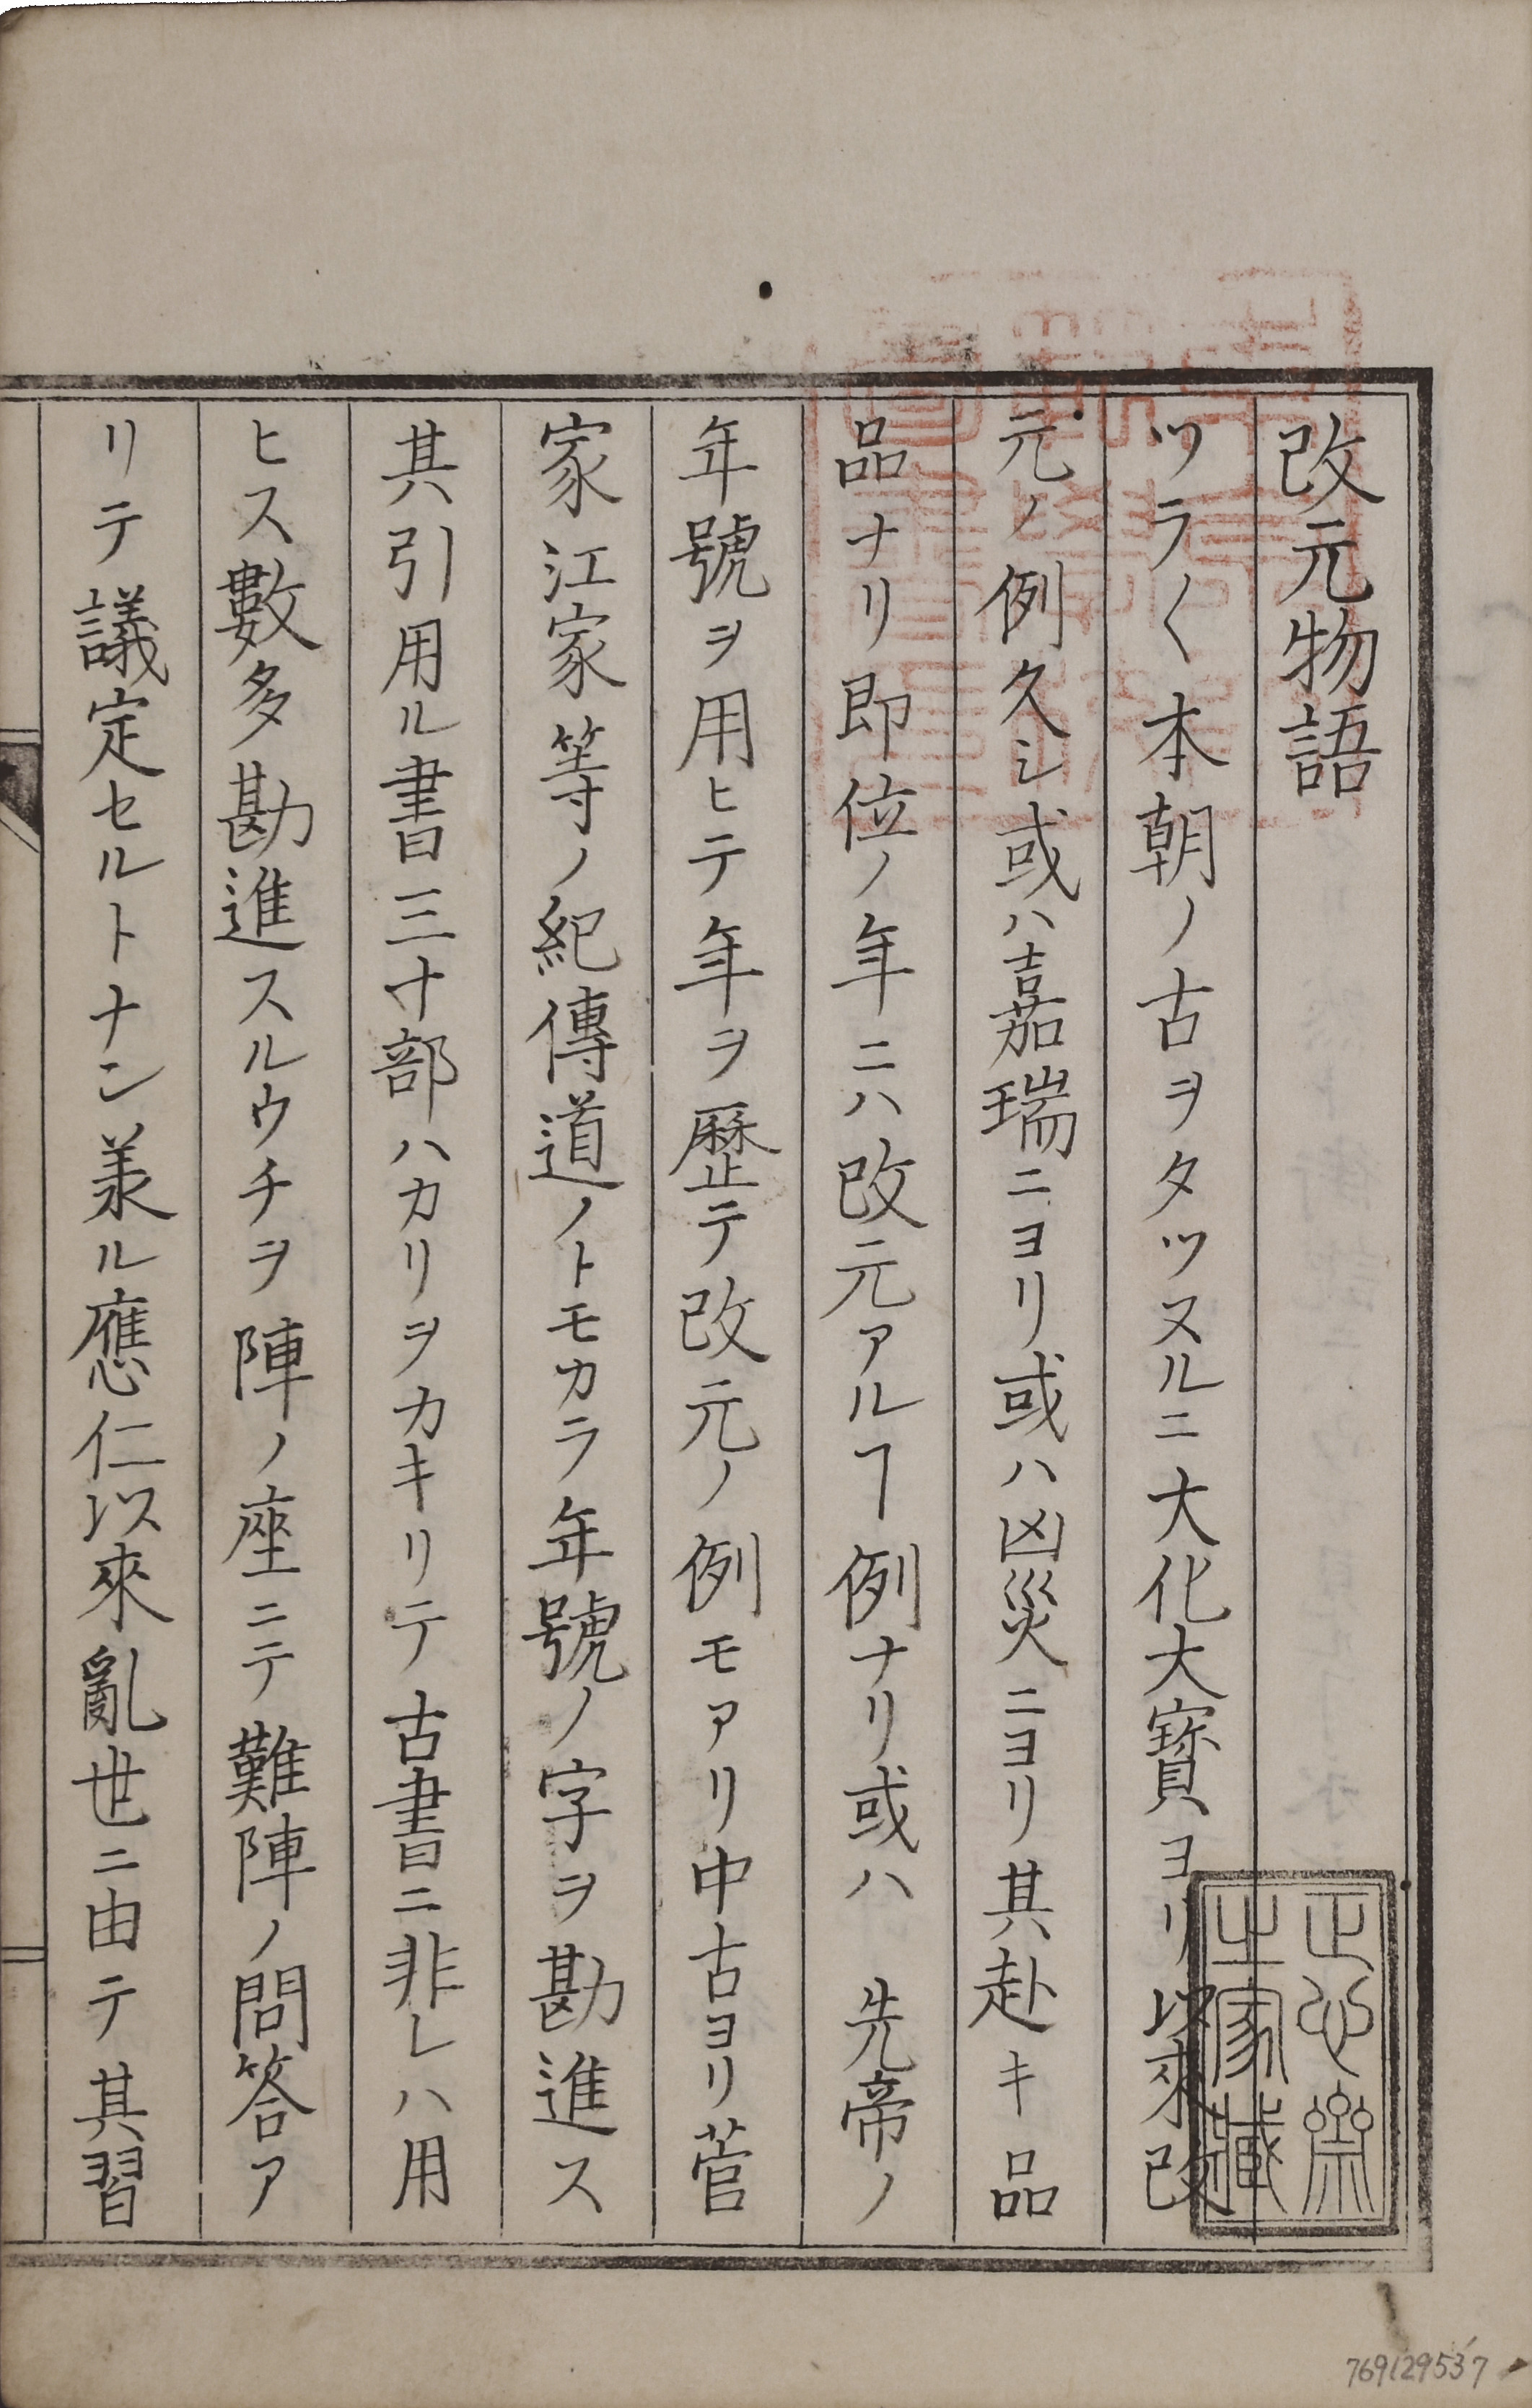 改元物語
ツラ〱本朝ノ古ヲタツヌルニ大化大寶ヨリ以來改
元ノ例久シ或ハ嘉瑞ニヨリ或ハ凶災ニヨリ其赴キ品
品ナリ即位ノ年ニハ改元アルヿ例ナリ或ハ 先帝ノ
年號ヲ用ヒテ年ヲ歴テ改元ノ例モアリ中古ヨリ菅
家江家等ノ紀傳道ノトモカラ年號ノ字ヲ勘進ス
其引用ル書三十部ハカリヲカキリテ古書ニ非レハ用
ヒス數多勘進スルウチヲ陣ノ座ニテ難陣ノ問答ア
リテ議定セルトナン羕ル應仁以來亂世ニ由テ其習
正心齋
之家藏
769129537